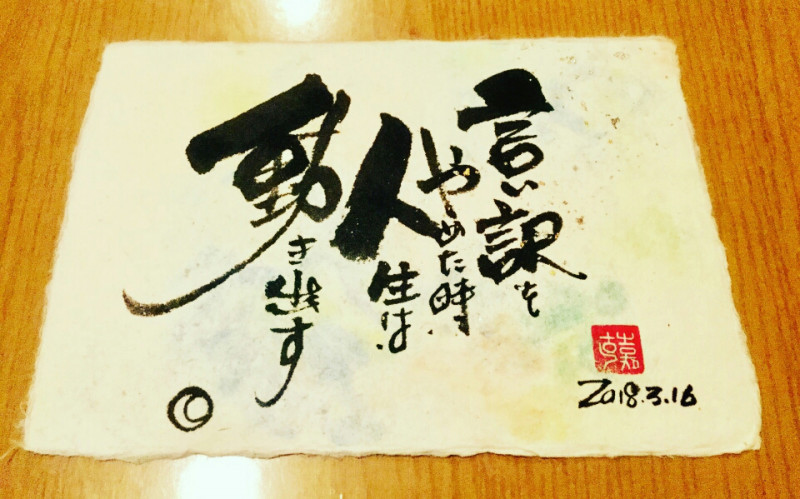 言い訳を
やめた時
人生は
動き出す
2018.3.16